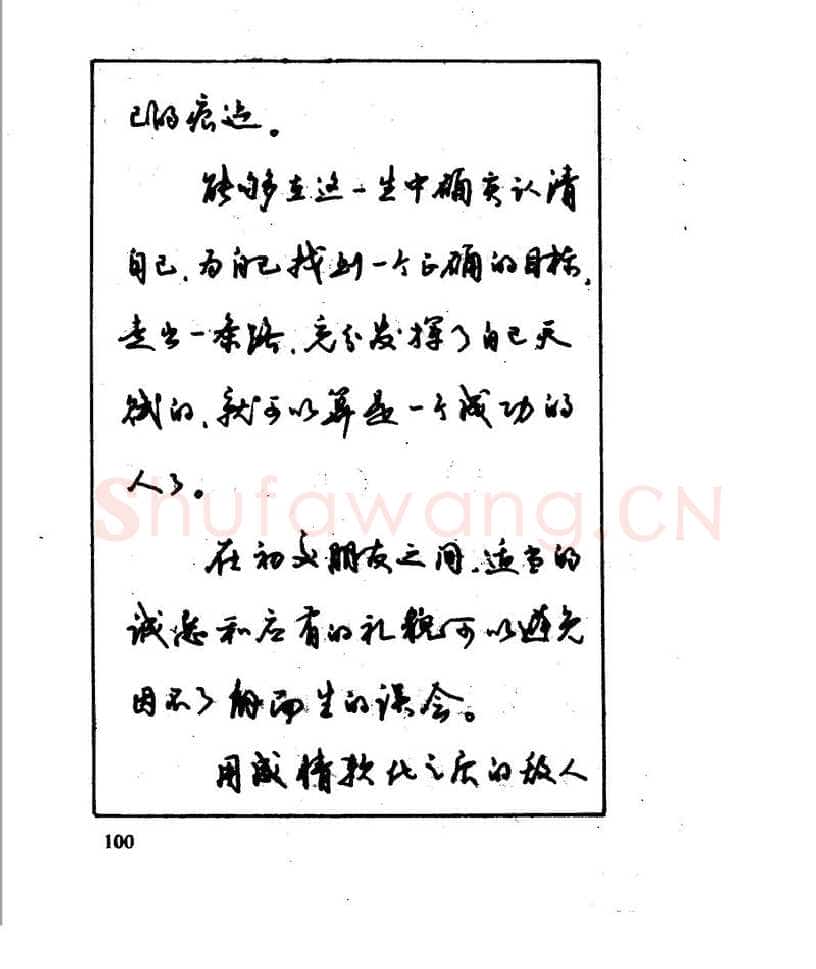 己的痕迹。
能够在这一生中确实认清
自己,为自己找到一个正确的目标,
走出一条路,充分发挥了自己天
赋的,就可以算是一个成功的
人了。
Shufawang.CN
在初交朋友之间,适当的
诚恳和应有的礼貌可以避免
因不了解而生的误会。
用感情软化之后的敌人
100